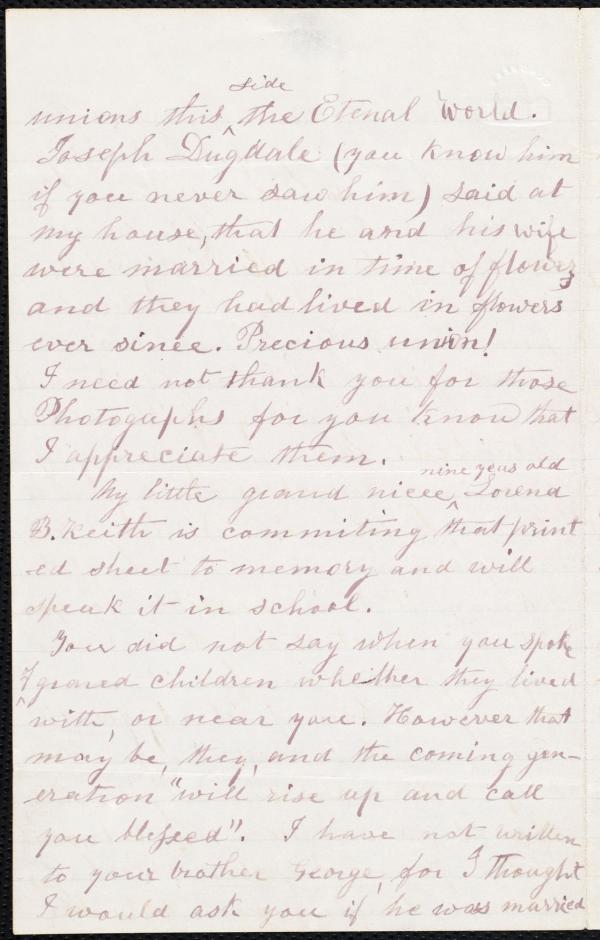 side
unions this ^ the Etenal World.
Joseph Dugdale (you know him
if you never saw him) said at
my house, that he and his wife
were married in time of flowers
and they had lived in flowers
ever since. Precious union!
I need not thank you for those
Photogaphs for you know that
I appreciate them.
nine years old
My little grand niece ^ Lorend
B. Keith is commiting that print
ed sheet to memory and will
speak it in school.
You did not say when you spoke
of grand children whether they lived
with, or near you. However that
may be, they, and the coming gen-
eration "will rise up and call
you blessed". I have not written
to your brother George, for I thought
I would ask you if he was married